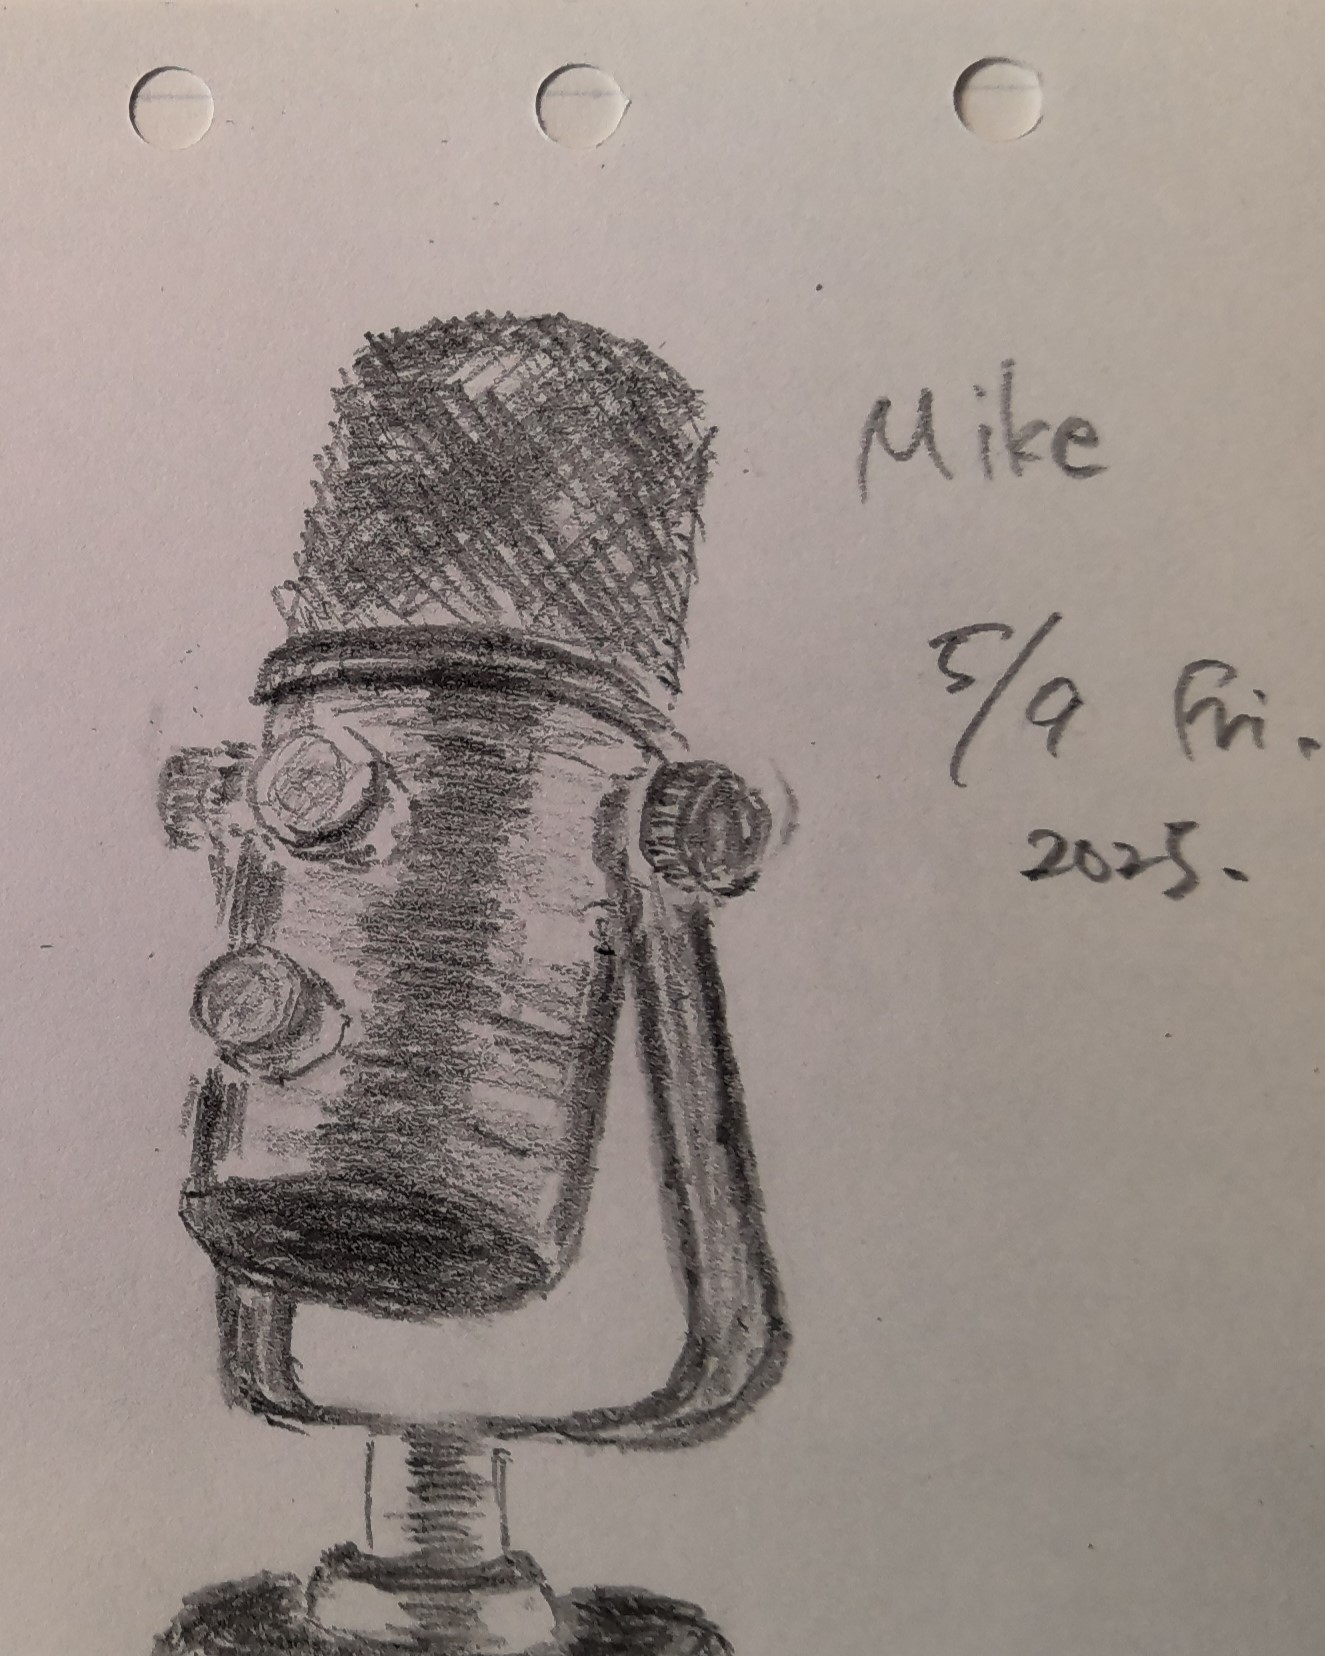 Mike
5/9 Fri.
2025.